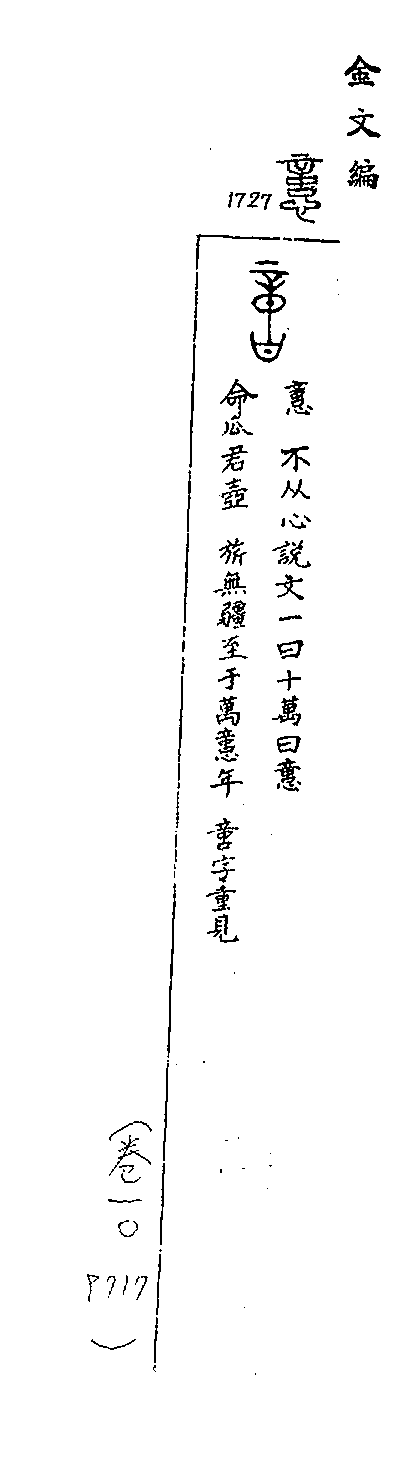 金文編
1727
𢡃 不从心説文一曰十萬曰𢡃
命瓜君壺 旂無疆至于萬𢡃年 𠶷字重見
(卷一〇 P717)